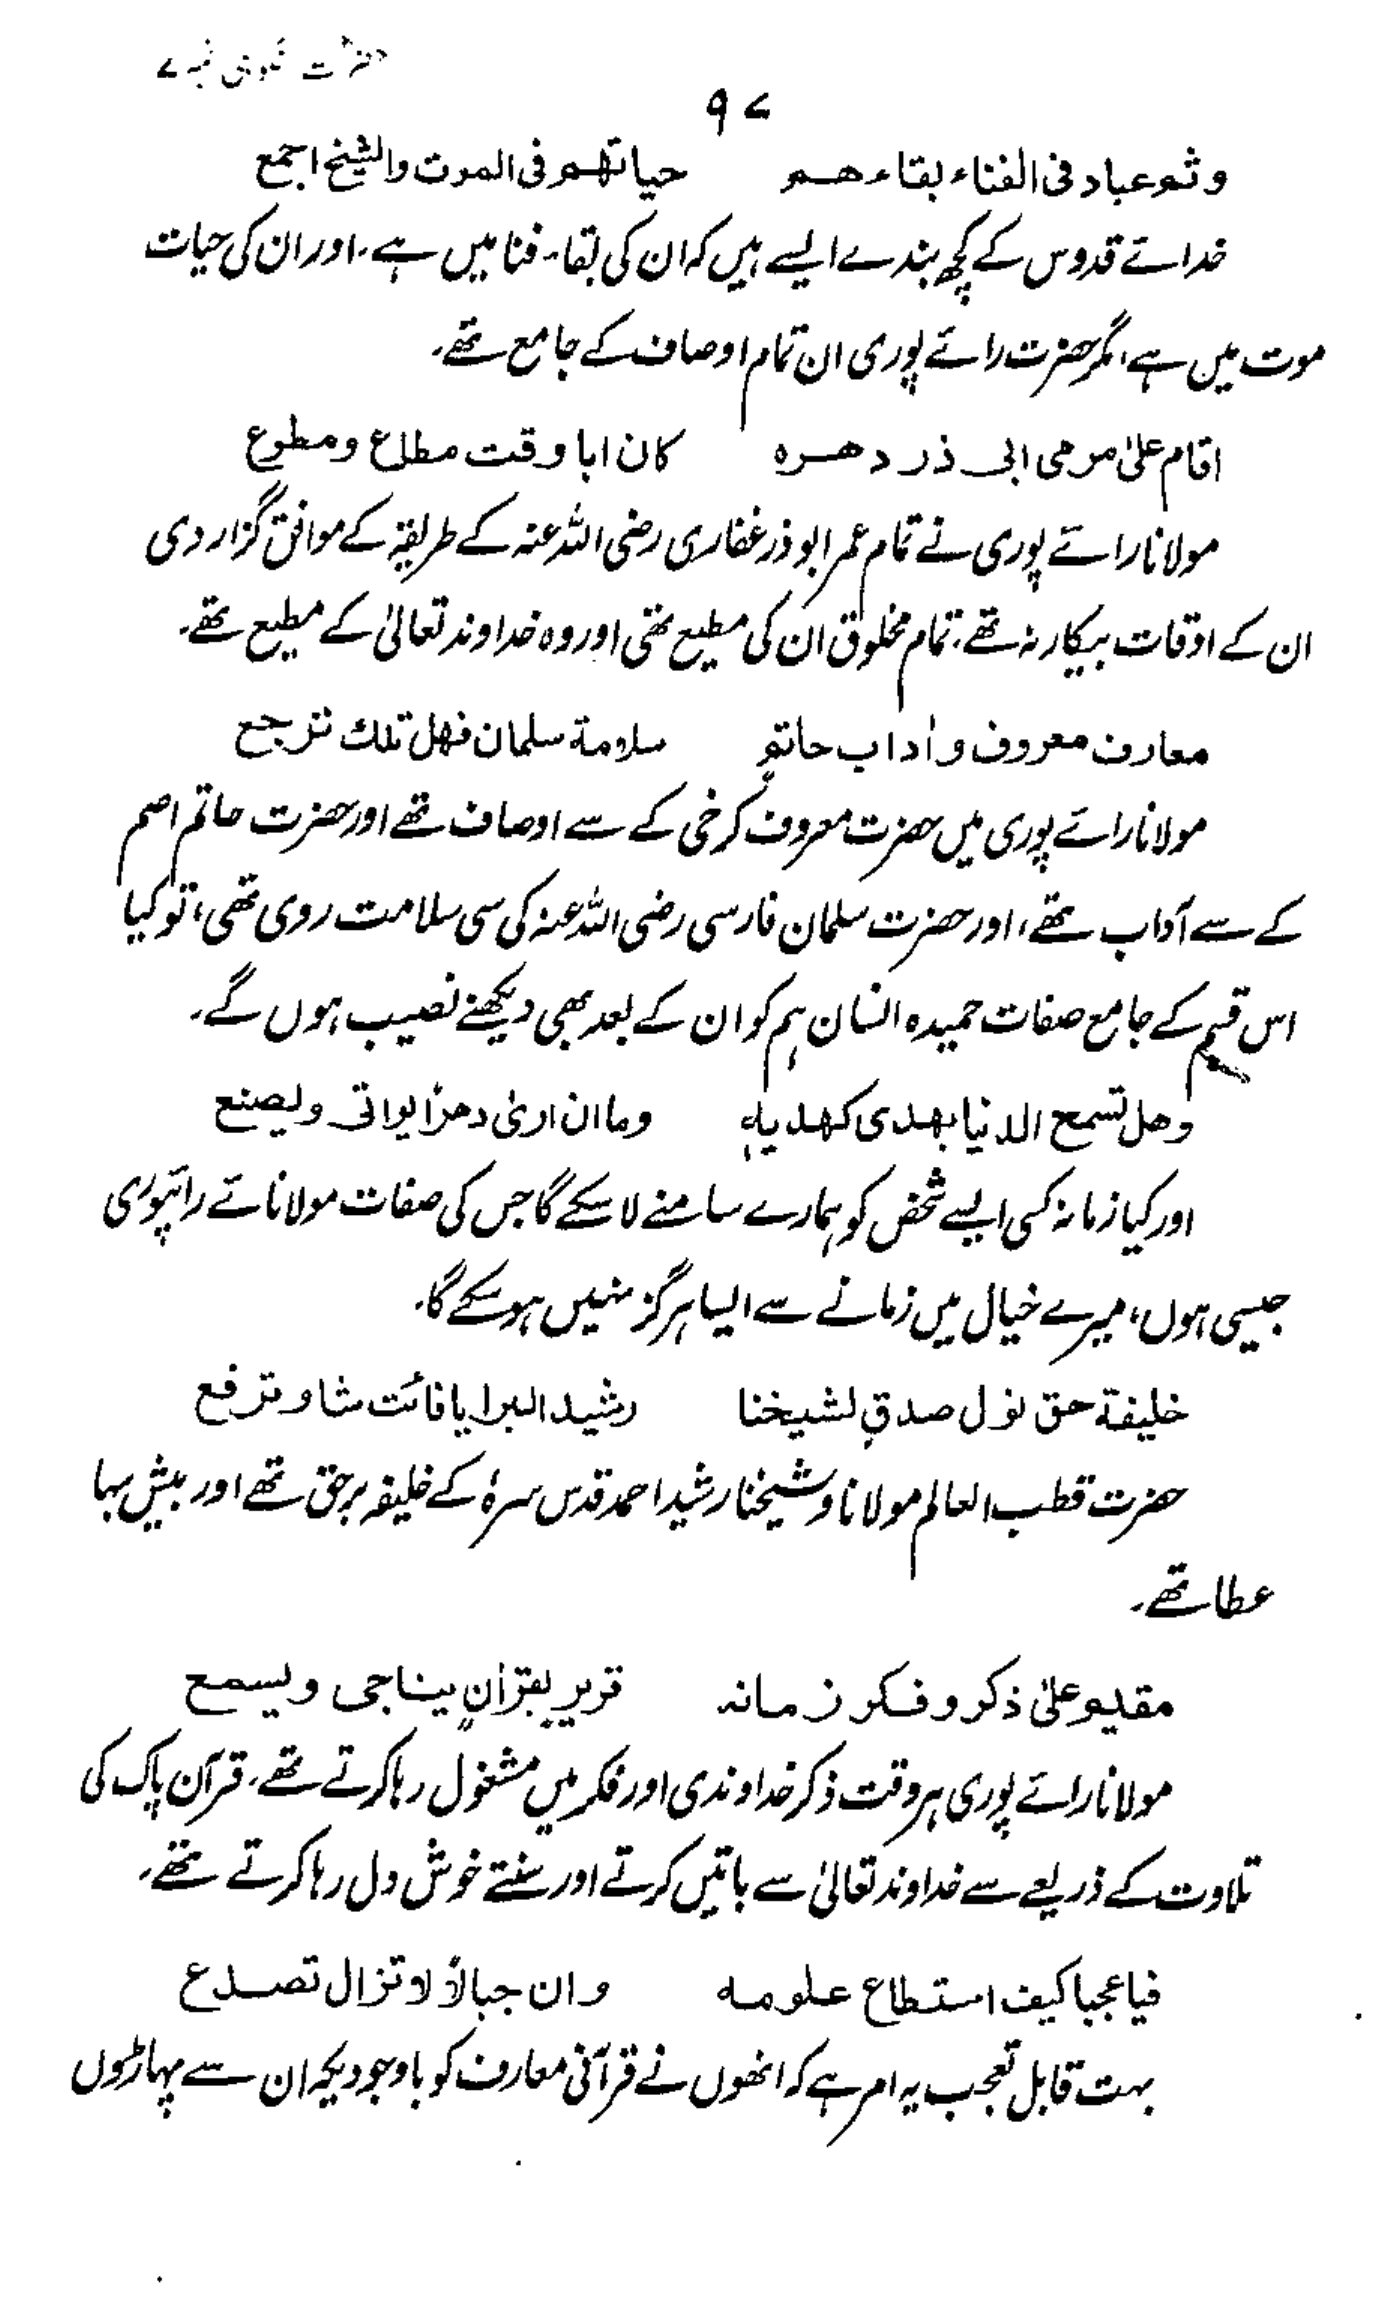 ۹۷
وثم عباد فی الفناء بقاءهم حیاتهم فی الموت والشیخ اجمع
خدائے قدوس کے کچھ بندے ایسے ہیں کہ ان کی بقاء فنا میں ہے، اور ان کی حیات
موت میں ہے، مگر حضرت رائے پوری ان تمام اوصاف کے جامع تھے۔
اقام علیٰ مرمی ابی ذر دهره کان ابا وقت مطاع ومطوع
مولانا رائے پوری نے تمام عمر ابوذر غفاری رضی اللہ عنہ کے طریقہ کے موافق گزار دی
ان کے اوقات بیکار نہ تھے، تمام مخلوق ان کی مطیع تھی اور وہ خداوند تعالیٰ کے مطیع تھے۔
معارف معروف واٰداب حاتمٍ سلامة سلمان فهل تلك ترجع
مولانا رائے پوری میں حضرت معروف کرخی کے سے اوصاف تھے اور حضرت حاتم اصم
کے سے آداب تھے، اور حضرت سلمان فارسی رضی اللہ عنہ کی سی سلامت روی تھی، تو کیا
اس قسم کے جامع صفات حمیدہ انسان ہم کو ان کے بعد بھی دیکھنے نصیب ہوں گے۔
وهل تسمع الدنیا بهدی کهدیهٖ وما ان اریٰ دهرًا یواتی ویصنع
اور کیا زمانہ کسی ایسے شخص کو ہمارے سامنے لا سکے گا جس کی صفات مولانائے رائپوری
جیسی ہوں، میرے خیال میں زمانے سے ایسا ہرگز نہیں ہو سکے گا۔
خلیفة حق نول صدقٍ لشیخنا رشید البرایا فائت شاو ترفع
حضرت قطب العالم مولانا و شیخنا رشید احمد قدس سرہٗ کے خلیفہ برحق تھے اور بیش بہا
عطا تھے۔
مقیم علیٰ ذکر وفکر زمانه قریر بقراٰنٍ یناجی ویسمع
مولانا رائے پوری ہر وقت ذکر خداوندی اور فکر میں مشغول رہا کرتے تھے۔ قرآن پاک کی
تلاوت کے ذریعے سے خداوند تعالیٰ سے باتیں کرتے اور سنتے خوش دل رہا کرتے تھے۔
فیاعجبا کیف استطاع علومه وان جبالاً لا تزال تصدع
بہت قابل تعجب یہ امر ہے کہ انھوں نے قرآنی معارف کو باوجودیکہ ان سے پہاڑوں